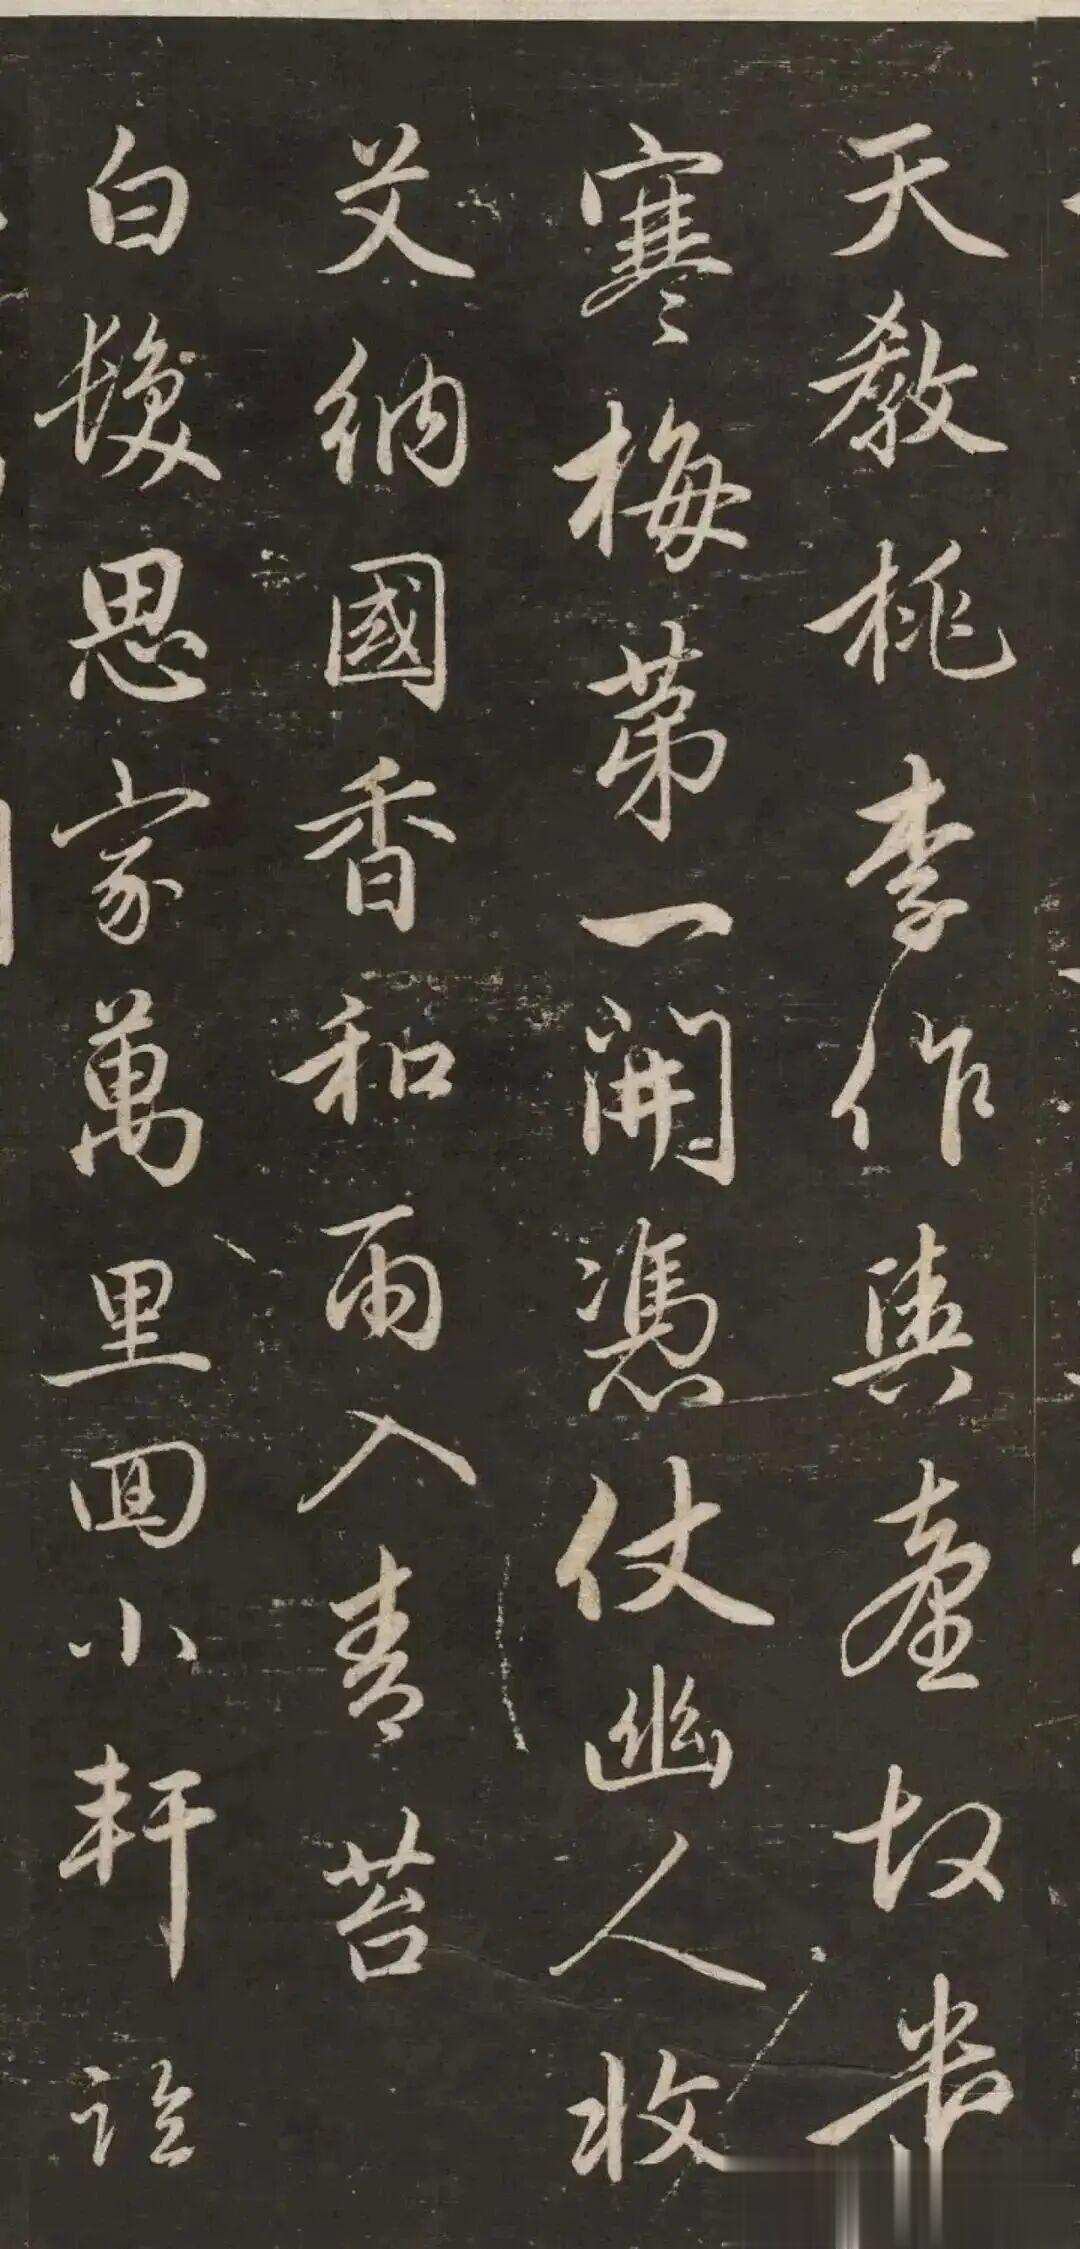 天教桃李作輿臺故
寒梅第一開憑仗幽人收
艾納國香和雨入青苔
白髮思家萬里回小軒臨